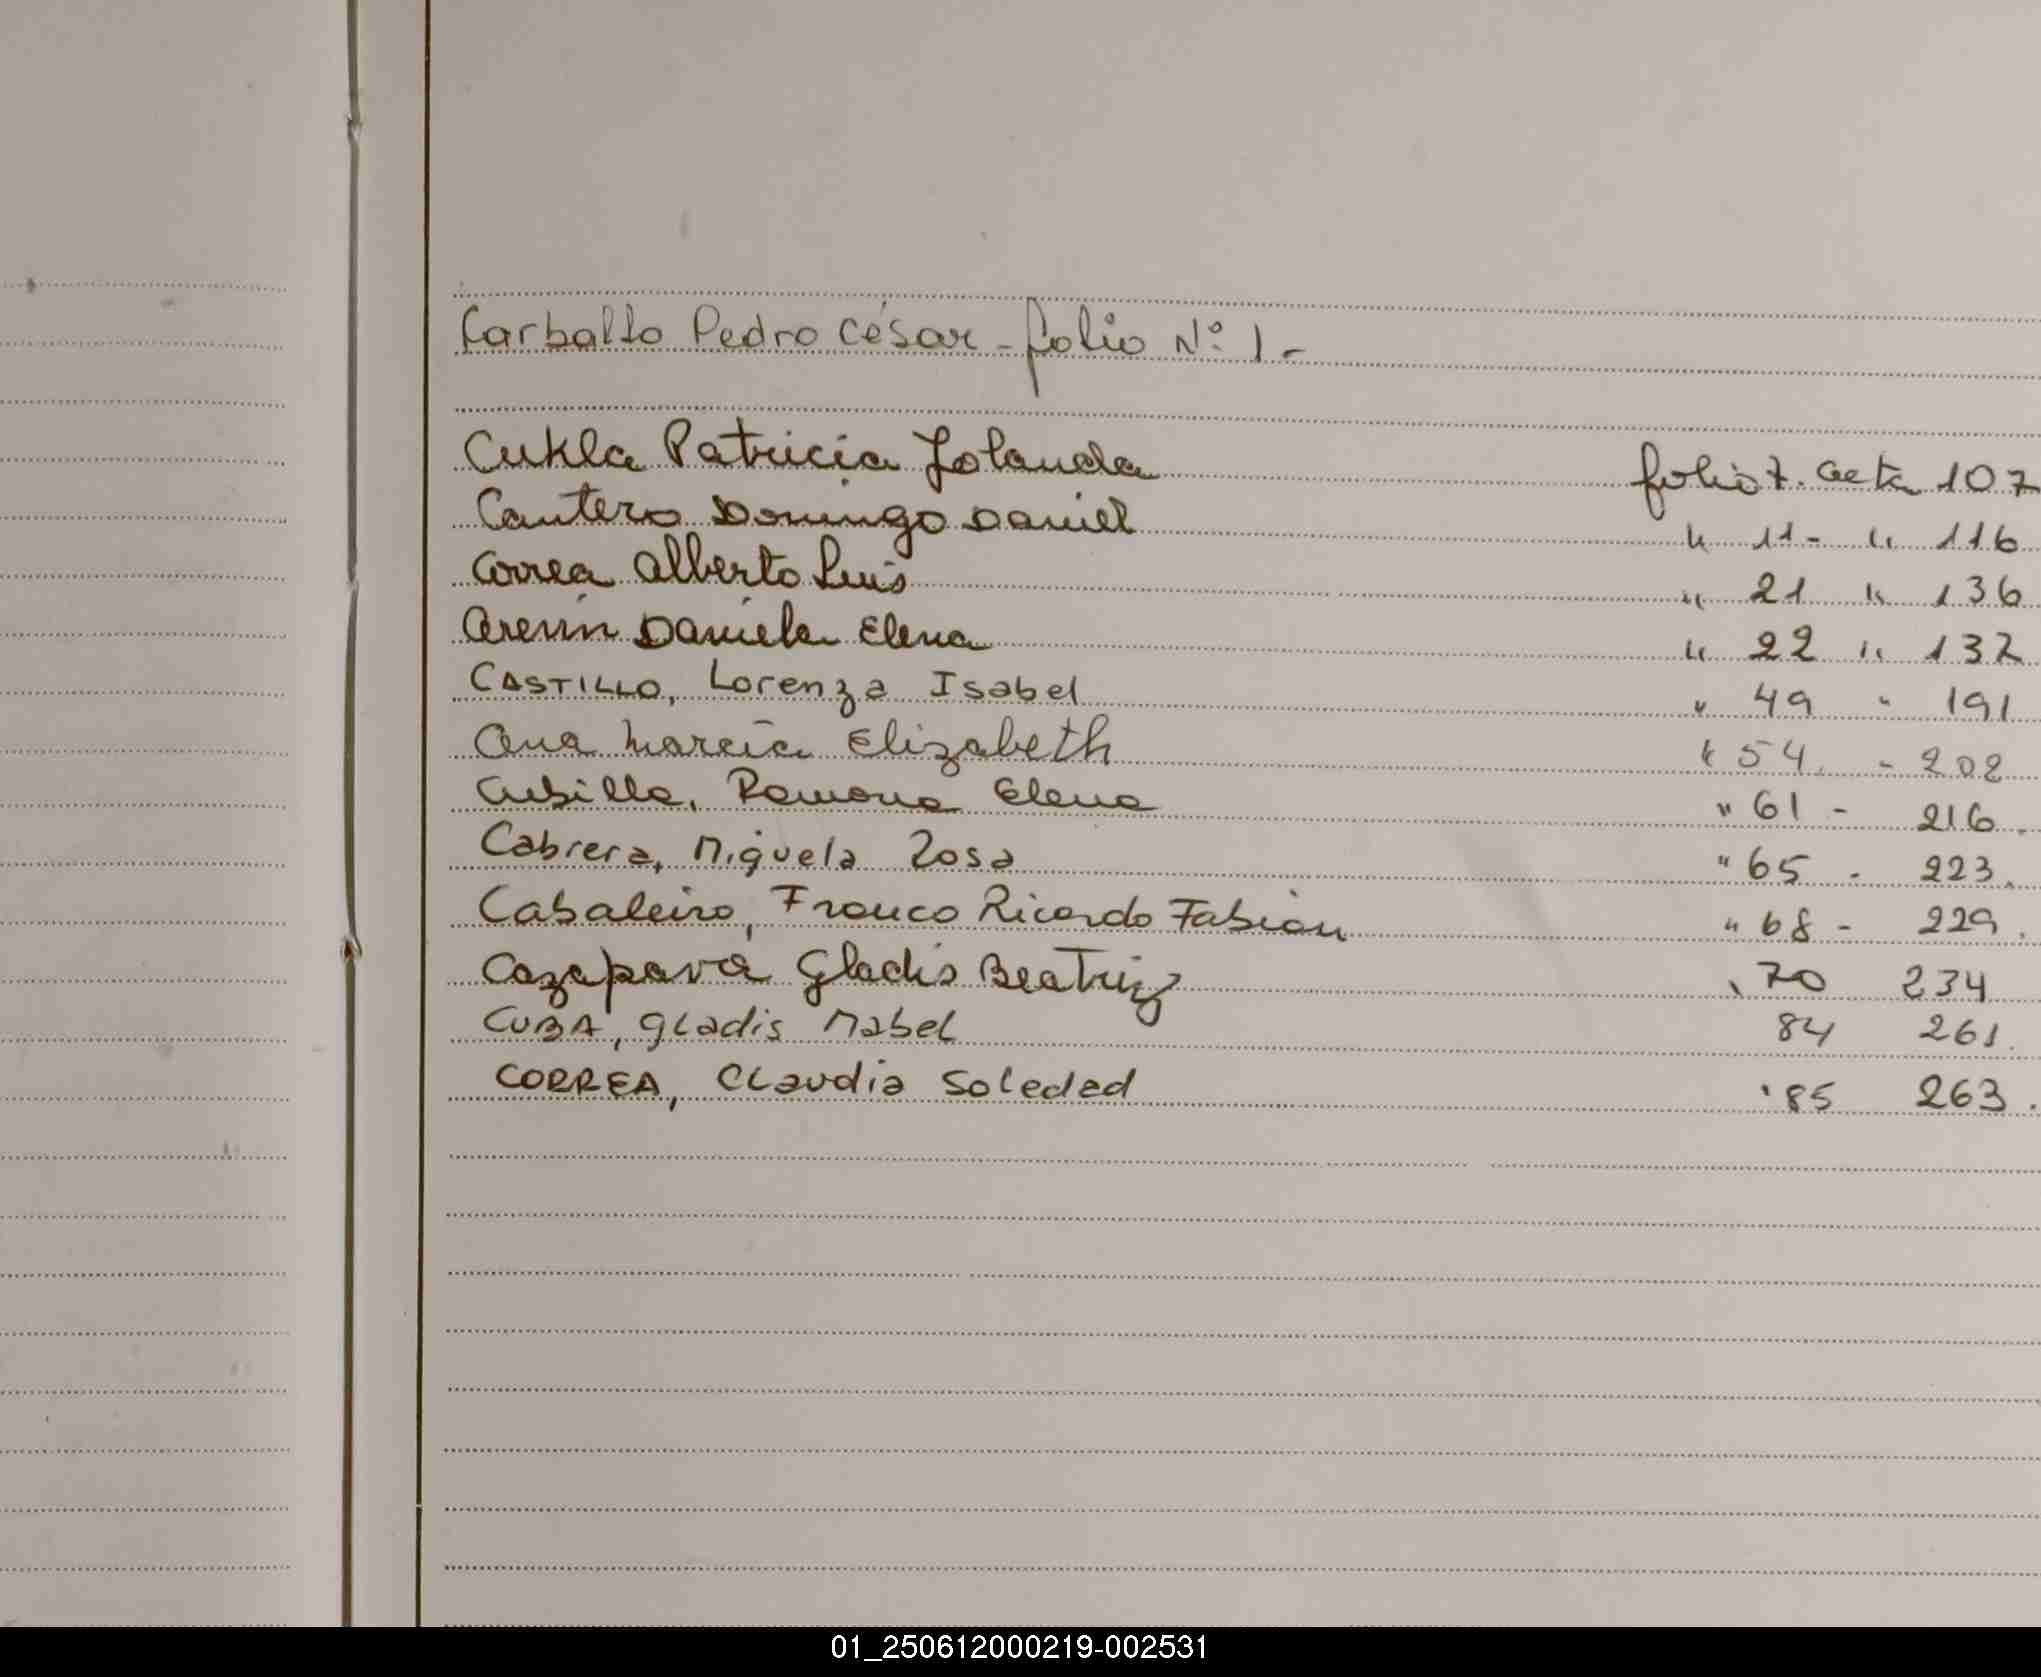 Carballo Pedro César - folio Nº 1 -
Cukla Patricia Jolanda folio 7. acta 107
Cantero Domingo Daniel " 11 - " 116
Correa Alberto Luis " 21 " 136
Daniela Elena " 22 " 137
CASTILLO, Lorenza Isabel " 49 " 191
Ana María Elizabeth " 54 - 202
Cubilla, Ramona Elena " 61 - 216.
Cabrera, Miguela Rosa " 65 - 223.
Cabaleiro, Franco Ricardo Fabian " 68 - 229.
Cazapava Gladis Beatriz " 70 234
CUBA, Gladis Mabel 84 261.
CORREA, Claudia Soledad " 85 263.
01_250612000219-002531